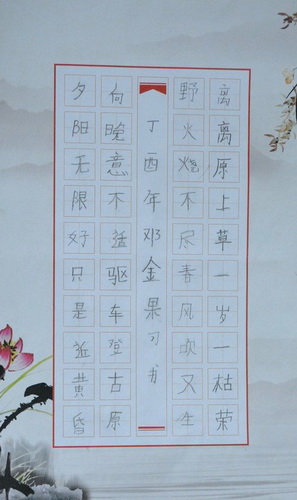 离离原上草一岁一枯荣
野火烧不尽春风吹又生
丁酉年邓金果习书
向晚意不适驱车登古原
夕阳无限好只是近黄昏